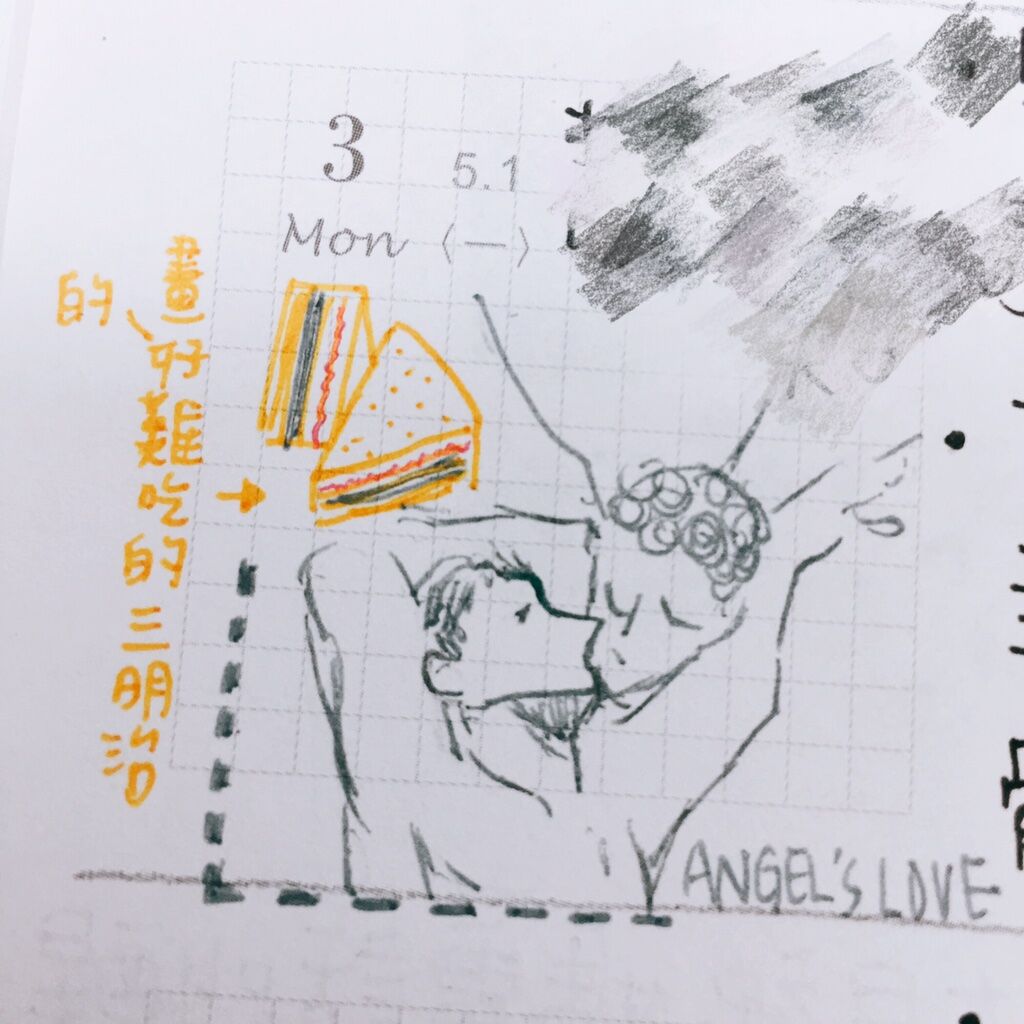 3 5.1
Mon 〈一〉
畫的好難吃的三明治
ANGEL'S LOVE